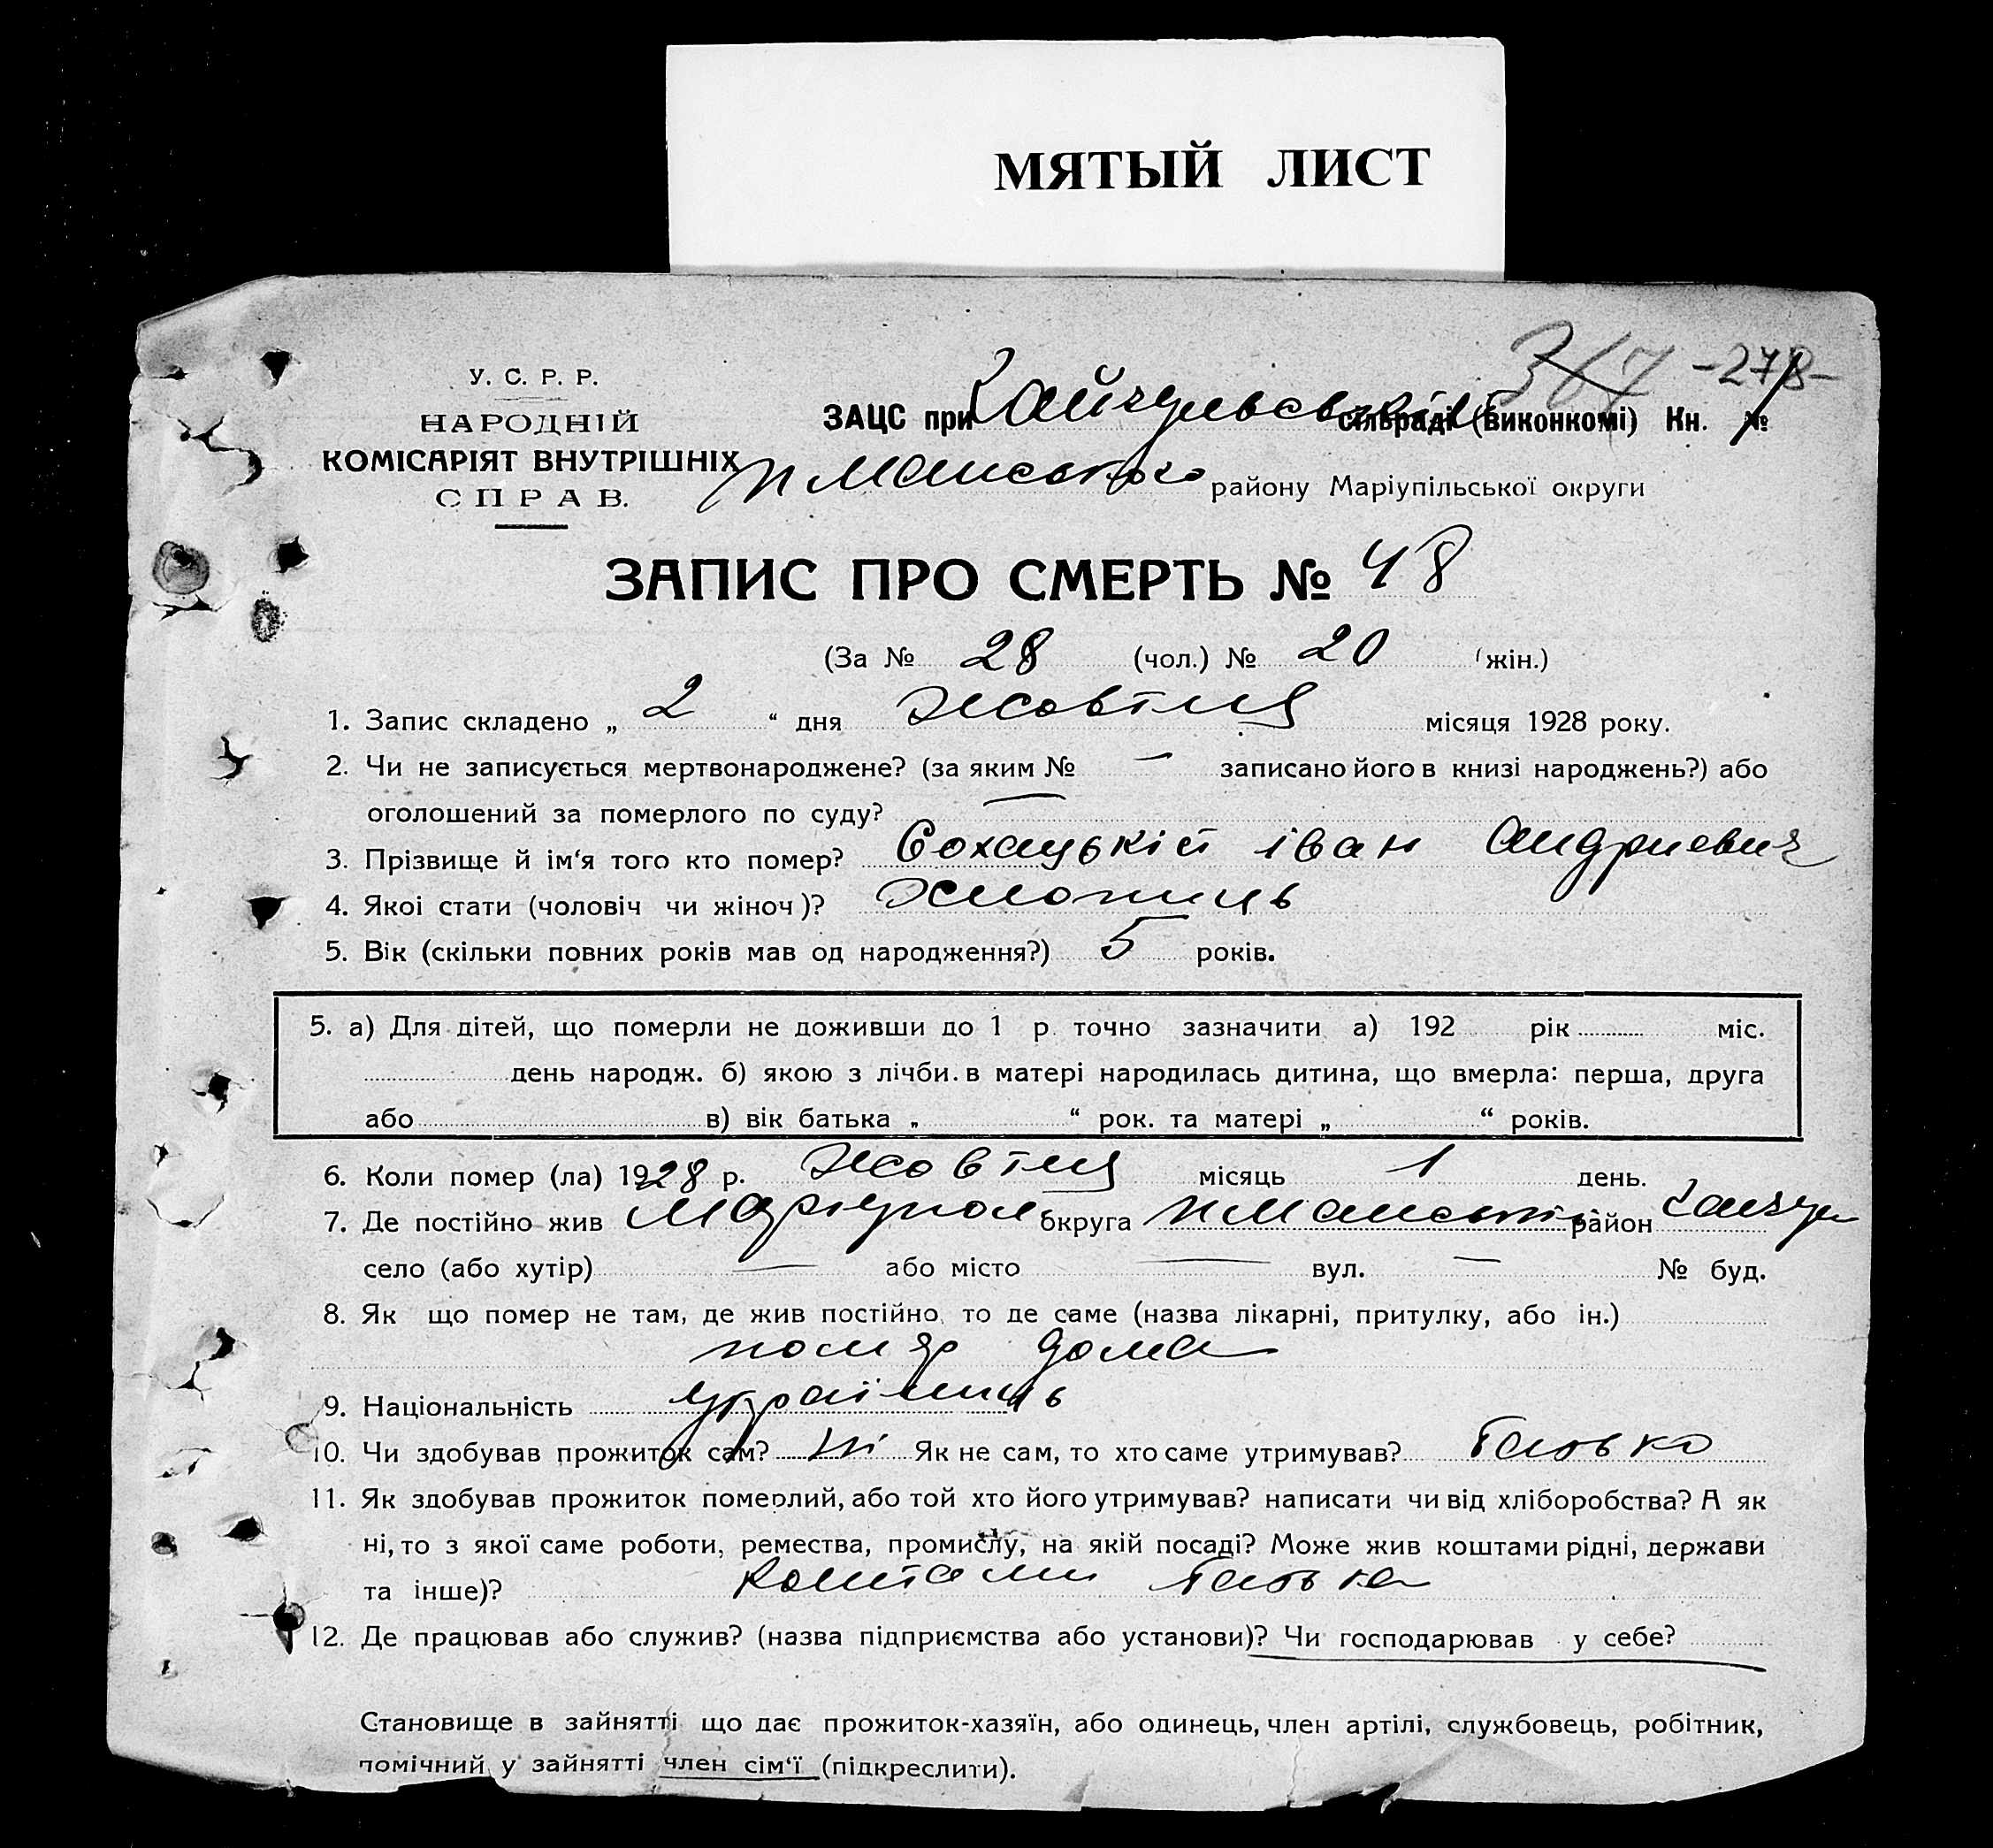 МЯТЫЙ ЛИСТ
367 -278-
У. С. Р. Р.
НАРОДНІЙ
КОМІСАРІЯТ ВНУТРІШНІХ
СПРАВ.
ЗАЦС при сільраді (виконкомі) Кн. №
району Маріупільської округи
ЗАПИС ПРО СМЕРТЬ № 48
(За № 28 (чол.) № 20 (жін.)
1. Запис складено „ 2 “ дня жовтня місяця 1928 року.
2. Чи не записується мертвонароджене? (за яким № — записано його в книзі народжень?) або
оголошений за померлого по суду? —
3. Прізвище й ім‘я того кто помер? Сохацькій іван андриевич
4. Якоі стати (чоловіч чи жіноч)? хлопиць
5. Вік (скільки повних років мав од народження?) 5 років.
5. а) Для дітей, що померли не доживши до 1 р. точно зазначити а) 192 рік міс.
день народж. б) якою з лічби в матері народилась дитина, що вмерла: перша, друга
або в) вік батька „ “ рок. та матері „ “ років.
6. Коли помер (ла) 1928 р. жовтня місяць 1 день.
7. Де постійно жив Маріупол округа район
село (або хутір) — або місто — вул. — № буд.
8. Як що помер не там, де жив постійно, то де саме (назва лікарні, притулку, або ін.)
помер дома
9. Національність украіниць
10. Чи здобував прожиток сам? ні Як не сам, то хто саме утримував? батько
11. Як здобував прожиток померлий, або той хто його утримував? написати чи від хліборобства? А як
ні, то з якої саме роботи, ремества, промислу, на якій посаді? Може жив коштами рідні, держави
та інше)? коштами батька
12. Де працював або служив? (назва підприємства або установи)? Чи господарював у себе?
Становище в зайнятті що дає прожиток-хазяїн, або одинець, член артілі, службовець, робітник,
помічний у зайнятті член сім‘ї (підкреслити).